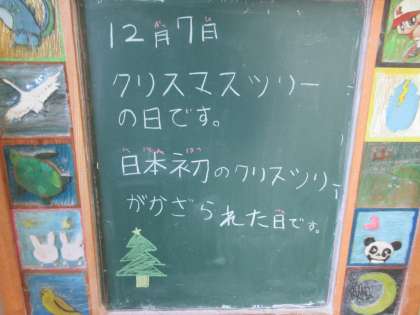 12月7日
クリスマスツリー
の日です。
日本初のクリスツリー
がかざられた日です。